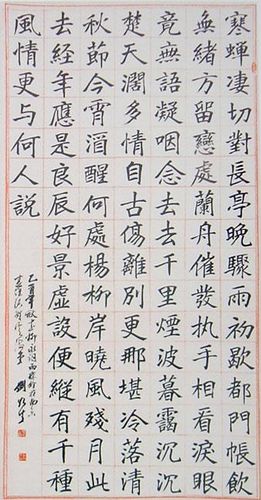 寒蟬淒切對長亭晚驟雨初歇都門帳飲
無緒方留戀處蘭舟催發执手相看淚眼
竟無語凝咽念去去千里煙波暮靄沉沉
楚天濶多情自古傷離別更那堪冷落清
秋節今宵酒醒何處楊柳岸曉風殘月此
去經年應是良辰好景虛設便縱有千種
風情更与何人說
乙酉年